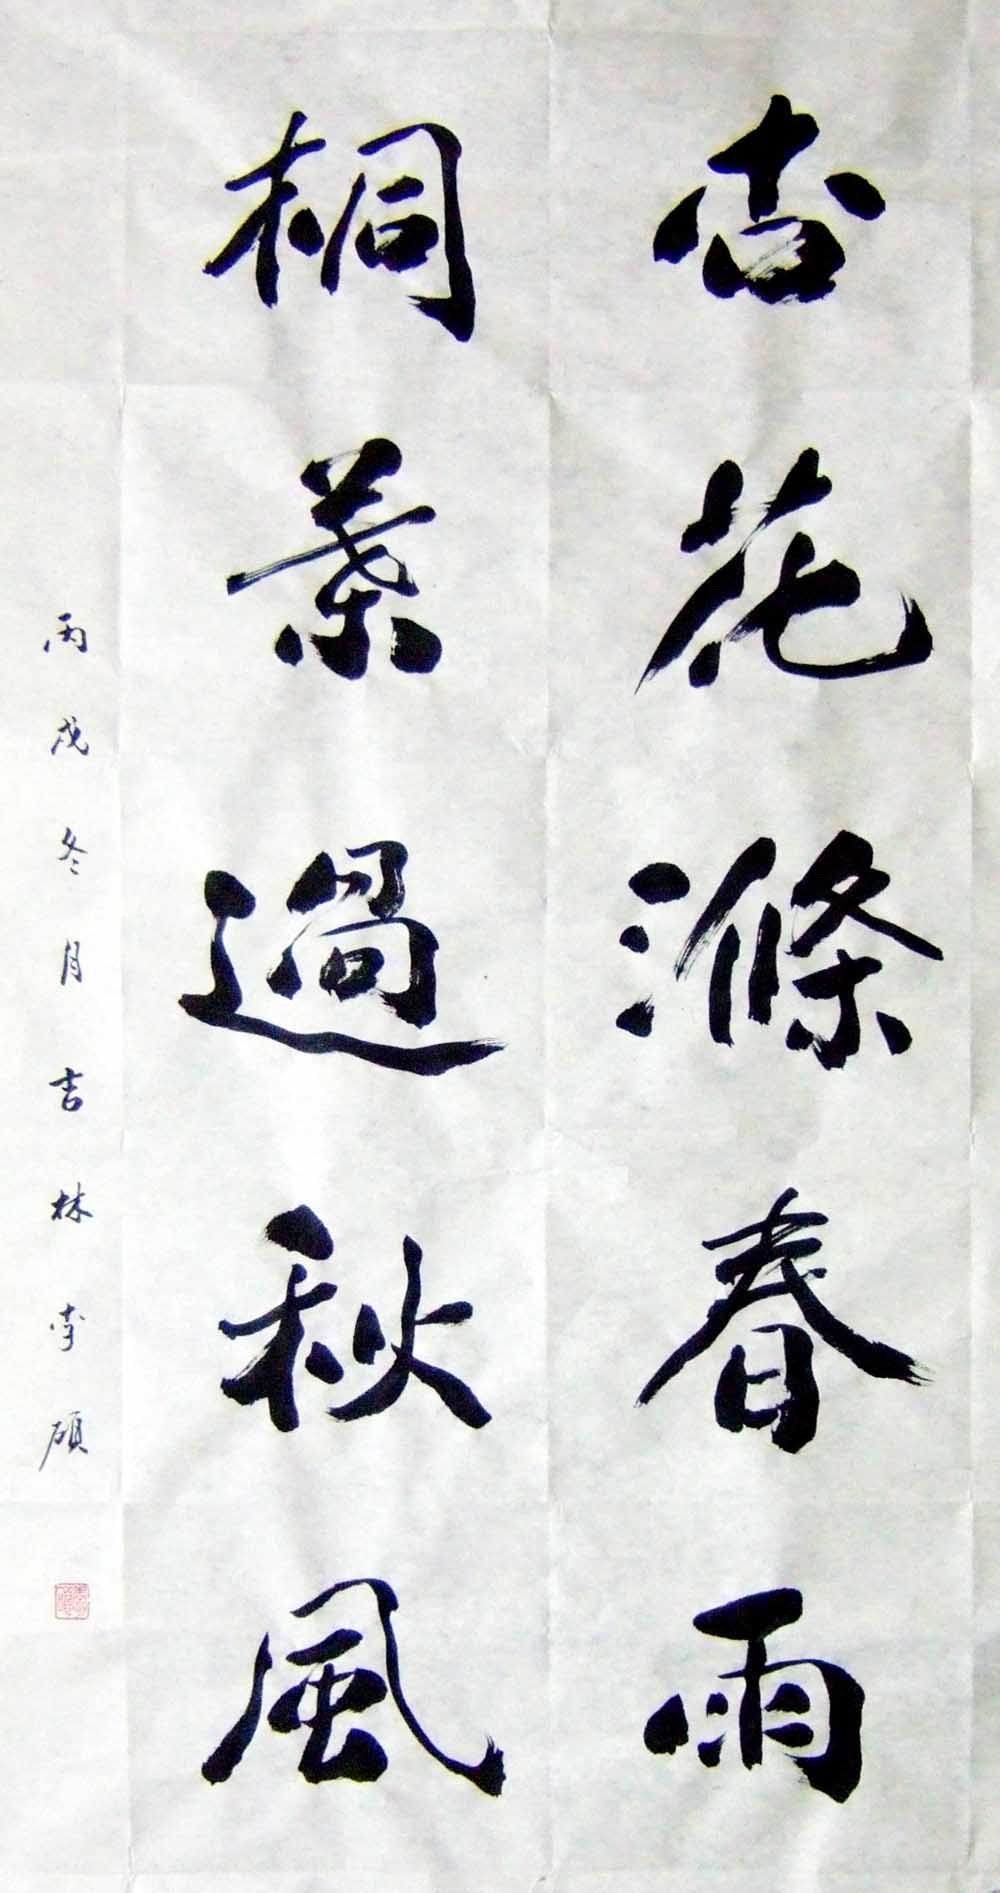 杏花滌春雨
桐葉過秋風
丙戌冬月吉林李碩